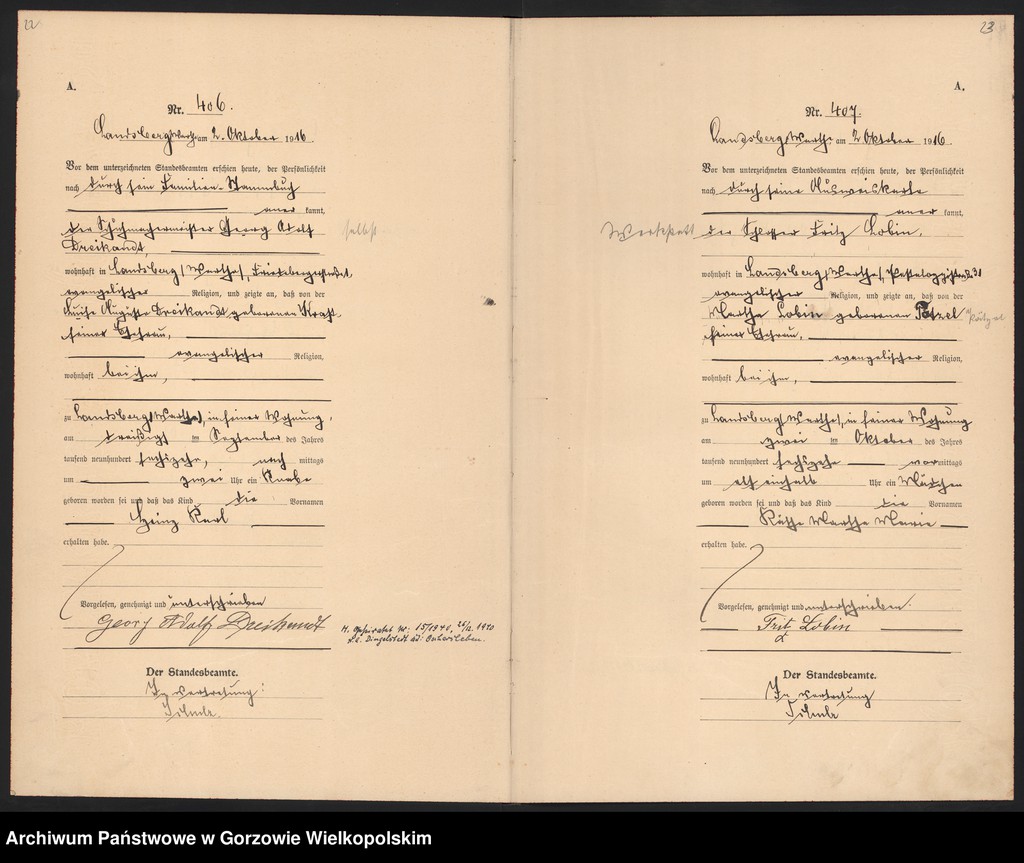 22
A.
Nr. 406.
Landsberg Warthe am 2. Oktober 1916.
Vor dem unterzeichneten Standesbeamten erschien heute, der Persönlichkeit
nach durch sein Familien-Stammbuch
aner kannt,
der Schuhmachermeister Georg Adolf selbst
Dreikandt,
wohnhaft in Landsberg (Warthe), Friedebergerstraße
evangelischer Religion, und zeigte an, daß von der
Luise Auguste Dreikandt geborenen
seiner Ehefrau,
evangelischer Religion,
wohnhaft bei ihm,
zu Landsberg (Warthe), in seiner Wohnung,
am dreißigsten September des Jahres
tausend neunhundert sechszehn, nach mittags
um zwei Uhr ein Knabe
geboren worden sei und daß das Kind die Vornamen
Heinz Karl
erhalten habe.
Vorgelesen, genehmigt und unterschrieben
Georg Adolf Dreikandt
Nr. 15/1940,
Der Standesbeamte.
In Vertretung:
23
A.
Nr. 407.
Landsberg Warthe am 2 Oktober 1916.
Vor dem unterzeichneten Standesbeamten erschien heute, der Persönlichkeit
nach durch seine Ausweiskarte
aner kannt,
Werkstatt der Schlosser Fritz Lobin,
wohnhaft in Landsberg (Warthe), Pestalozzistraße 31
evangelischer Religion, und zeigte an, daß von der
Marthe Lobin geborenen Pätzel
seiner Ehefrau,
evangelischer Religion,
wohnhaft bei ihm,
zu Landsberg (Warthe), in seiner Wohnung
am zwei ten Oktober des Jahres
tausend neunhundert sechszehn vor mittags
um elf einhalb Uhr ein Mädchen
geboren worden sei und daß das Kind die Vornamen
Käthe Marthe Marie
erhalten habe.
Vorgelesen, genehmigt und unterschrieben.
Fritz Lobin
Der Standesbeamte.
In Vertretung
Archiwum Państwowe w Gorzowie Wielkopolskim